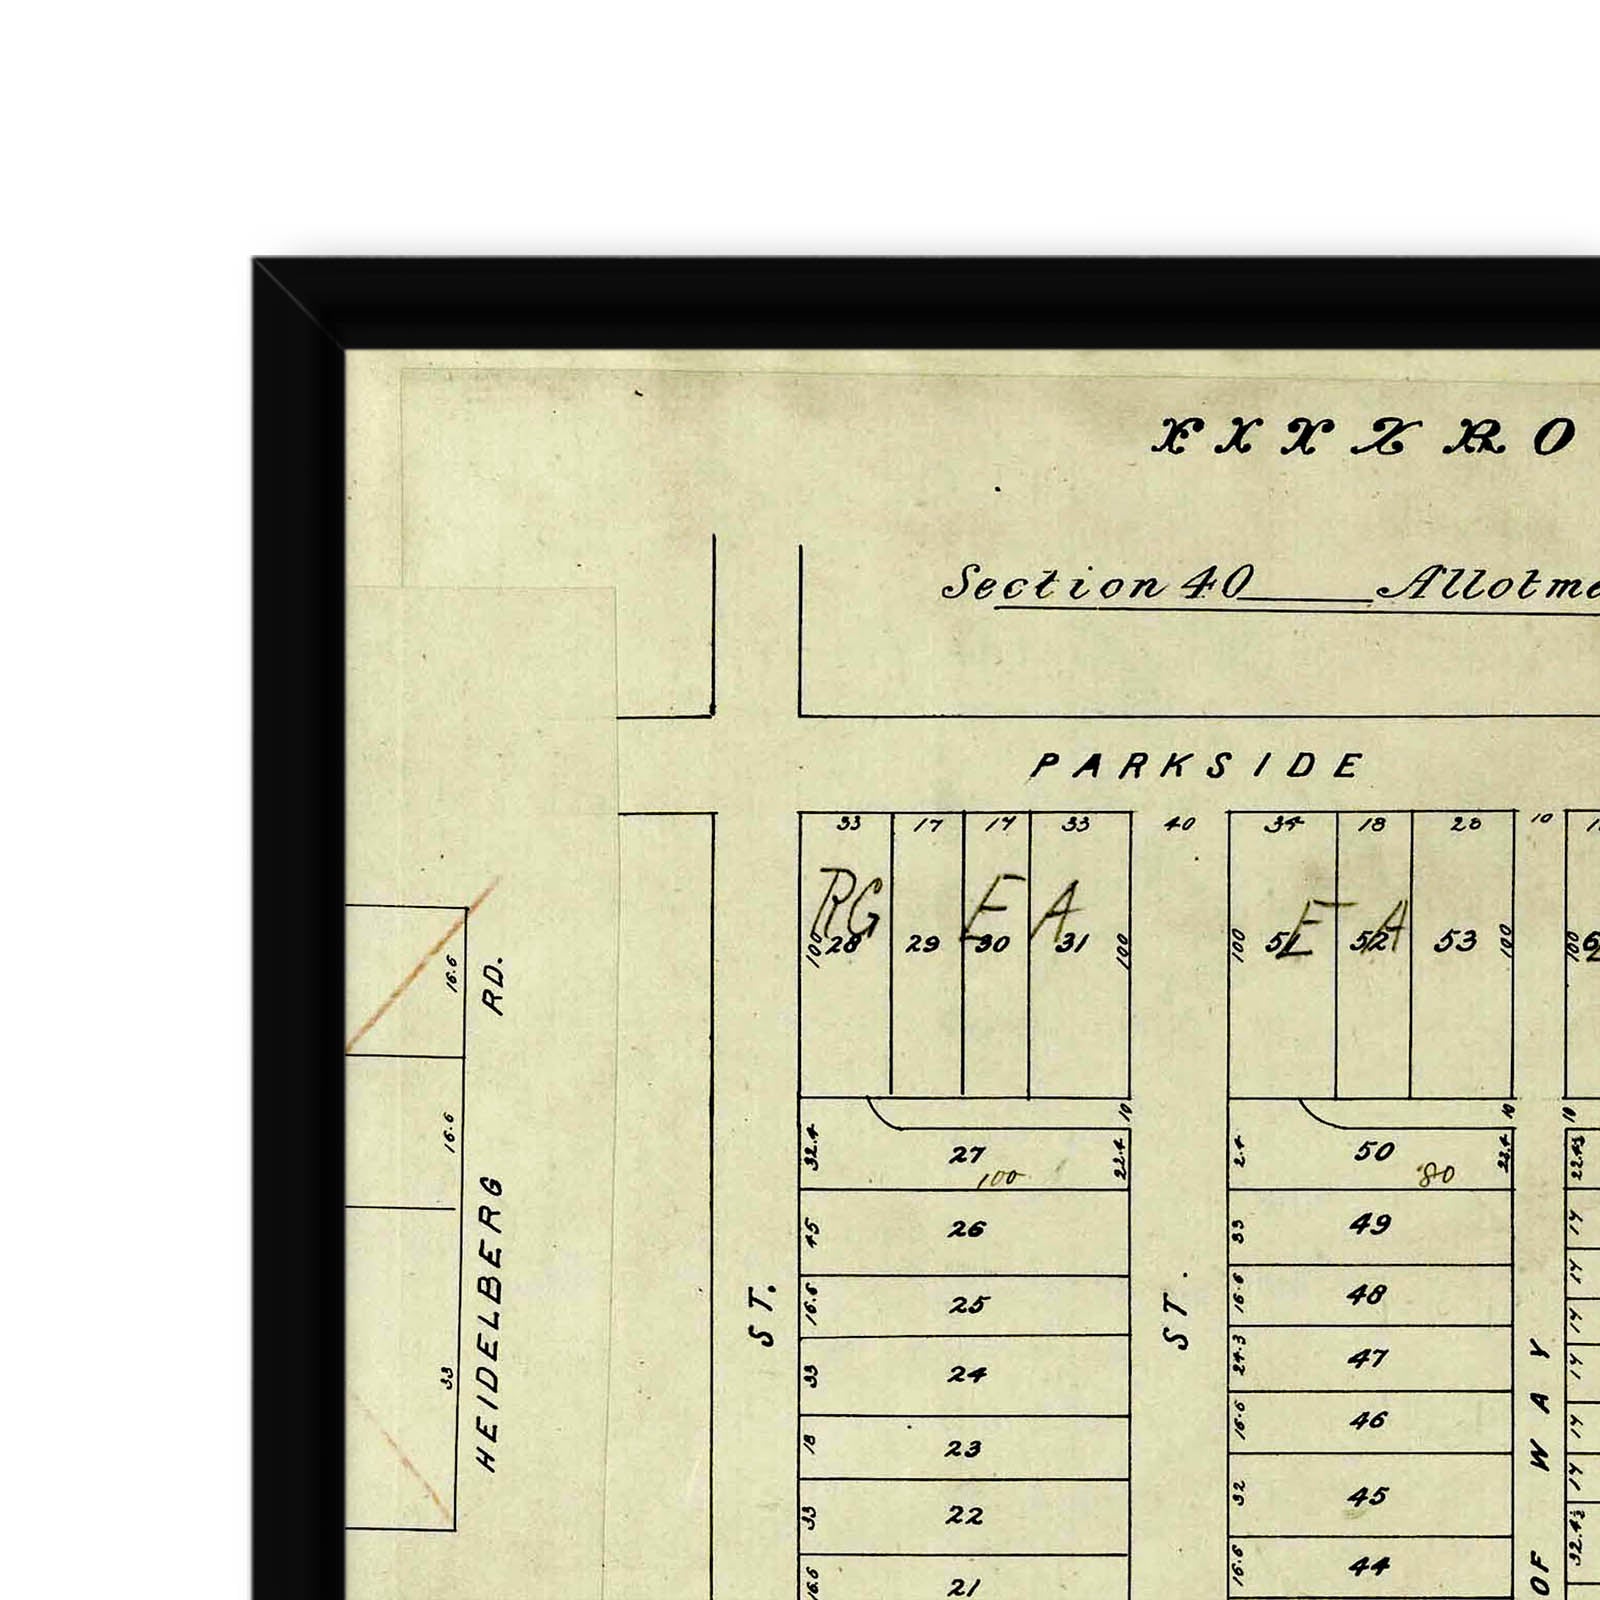 FITZRO
Section 40 Allotme
PARKSIDE
33 17 17 33 40 34 18 28 10
RG E A E A
100 28 29 30 31 100 100 51 52 53 100 100
16.6 RD.
10 10 10
32.4 27 22.4 2.4 50 22.4 22.4½
100 80
16.6
45 26 33 49 17
HEIDELBERG
16.6 25 ST. ST. 16.6 48 17
17
33 24 24.3 47 17
33
18 23 16.6 46 17
WAY
33 22 32 45 17
32.4½
16.6 21 16.6 44 OF